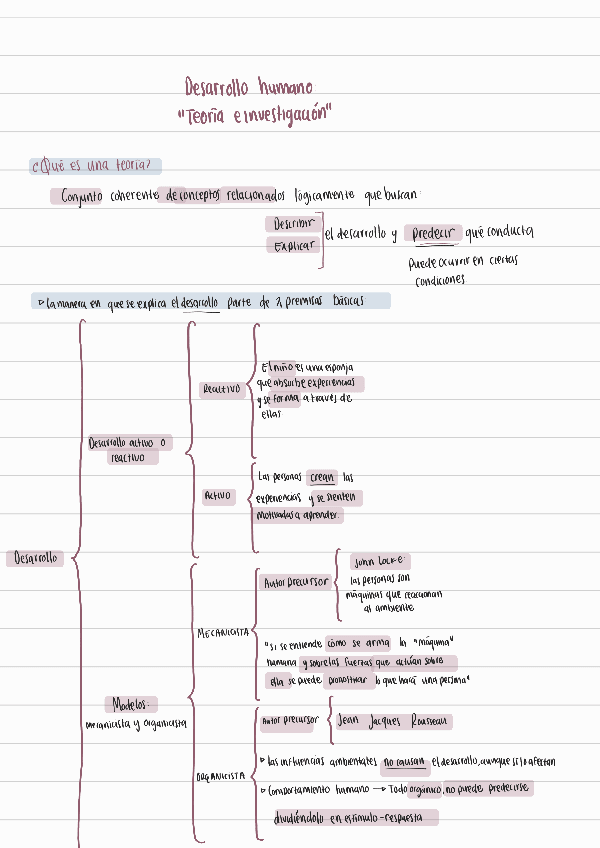 Desarrollo humano
"Teoría e investigación"
¿Qué es una teoría?
Conjunto coherente de conceptos relacionados lógicamente que buscan:
Describir
Explicar
el desarrollo y predecir que conducta
puede ocurrir en ciertas
condiciones
▷ La manera en que se explica el desarrollo parte de 2 premisas básicas:
Desarrollo
Desarrollo activo o
reactivo
REACTIVO
El niño es una esponja
que absorbe experiencias
y se forma a través de
ellas
ACTIVO
Las personas crean las
experiencias y se sienten
motivadas a aprender.
Modelos:
mecanicista y organicista
MECANICISTA
Autor precursor
John Locke:
las personas son
máquinas que reaccionan
al ambiente
"si se entiende cómo se arma la "máquina"
humana y sobre las fuerzas que actúan sobre
ella se puede pronosticar lo que hará una persona"
ORGANICISTA
Autor precursor
Jean Jacques Rousseau
▷ las influencias ambientales no causan el desarrollo, aunque si lo afectan
▷ Comportamiento humano → Todo orgánico, no puede predecirse
dividiéndolo en estímulo-respuesta